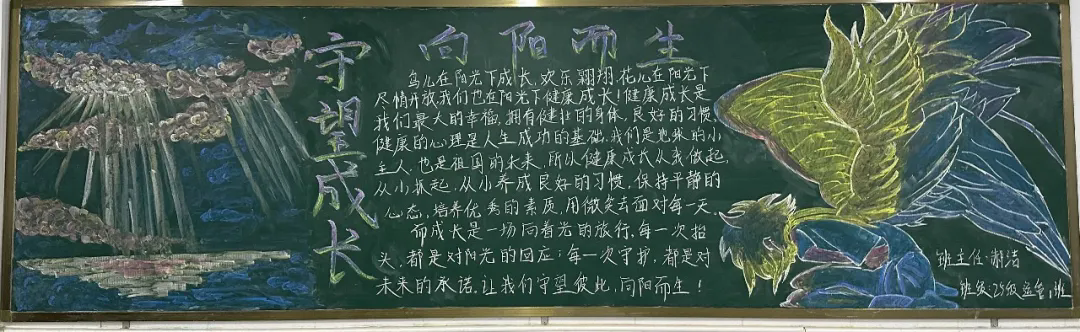 守望成长
向阳而生
鸟儿在阳光下成长,欢乐翱翔,花儿在阳光下
尽情开放,我们也在阳光下健康成长!健康成长是
我们最大的幸福,拥有健壮的身体,良好的习惯,
健康的心理是人生成功的基础,我们是地球的小
主人,也是祖国的未来,所以健康成长从我做起,
从小抓起,从小养成良好的习惯,保持平静的
心态,培养优秀的素质,用微笑去面对每一天。
而成长是一场向着光的旅行,每一次抬
头,都是对阳光的回应;每一次守护,都是对
未来的承诺,让我们守望彼此,向阳而生!
班主任:谢洁
班级:25级 班